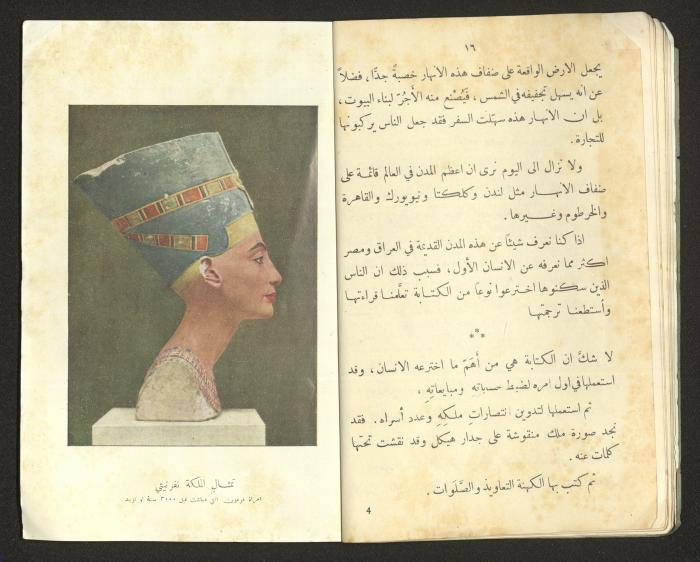 ١٦
يجعل الارض الواقعة على ضفاف هذه الانهار خصبةً جدّاً، فضلاً
عن انه يسهل تجفيفه في الشمس، فيُصْنع منه الأَجُرّ لبناء البيوت،
بل ان الانهار هذه سهّلت السفر فقد جعل الناس يركبونها
للتجارة.
ولا نزال الى اليوم نرى ان اعظم المدن في العالم قائمة على
ضفاف الانهار مثل لندن وكلكتا ونيويورك والقاهرة
والخرطوم وغيرها.
اذا كنا نعرف شيئاً عن هذه المدن القديمة في العراق ومصر
اكثر مما نعرفه عن الانسان الأول، فسبب ذلك ان الناس
الذين سكنوها اخترعوا نوعاً من الكتابة تعلَّمنا قراءتها
وأستطعنا ترجمتها
***
لا شكّ ان الكتابة هي من أَهَمّ ما اخترعه الانسان، وقد
استعملها في اول امره لضبط حساباتِهِ ومبايعاتِهِ،
ثم استعملها لتدوين انتصارات ملكِهِ وعدد أسراه. فقد
نجد صورة ملك منقوشة على جدار هيكل وقد نقشت تحتها
كلمات عنه.
ثم كتب بها الكهنة التعاويذ والصَّلَوات.
4
تمثال الملكة نفرتيتي
امرأة فرعون التي عاشت قبل ٣٠٠٠ سنة او تزيد